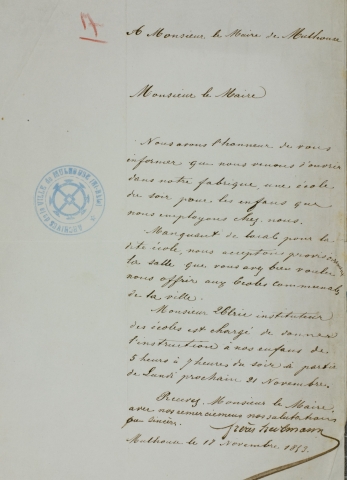 17
A Monsieur le Maire de Mulhouse
Monsieur le Maire
Nous avons l'honneur de vous
informer que nous venons d'ouvrir
dans notre fabrique, une école
du soir pour les enfans que
nous employons chez nous.
Manquant de local pour la
dite école, nous acceptons
la salle que vous avez bien voulu
nous offrir aux Ecoles Communales
de la ville.
Monsieur instituteur
des écoles est chargé de donner
l'instruction à nos enfans de
5 heurs à 7 heures du soir à partir
de Lundi prochain 21 Novembre.
Recevez, Monsieur le Maire,
avec nos remerciemens nos salutations
sincères.
frères
Mulhouse le 17 Novembre 1853